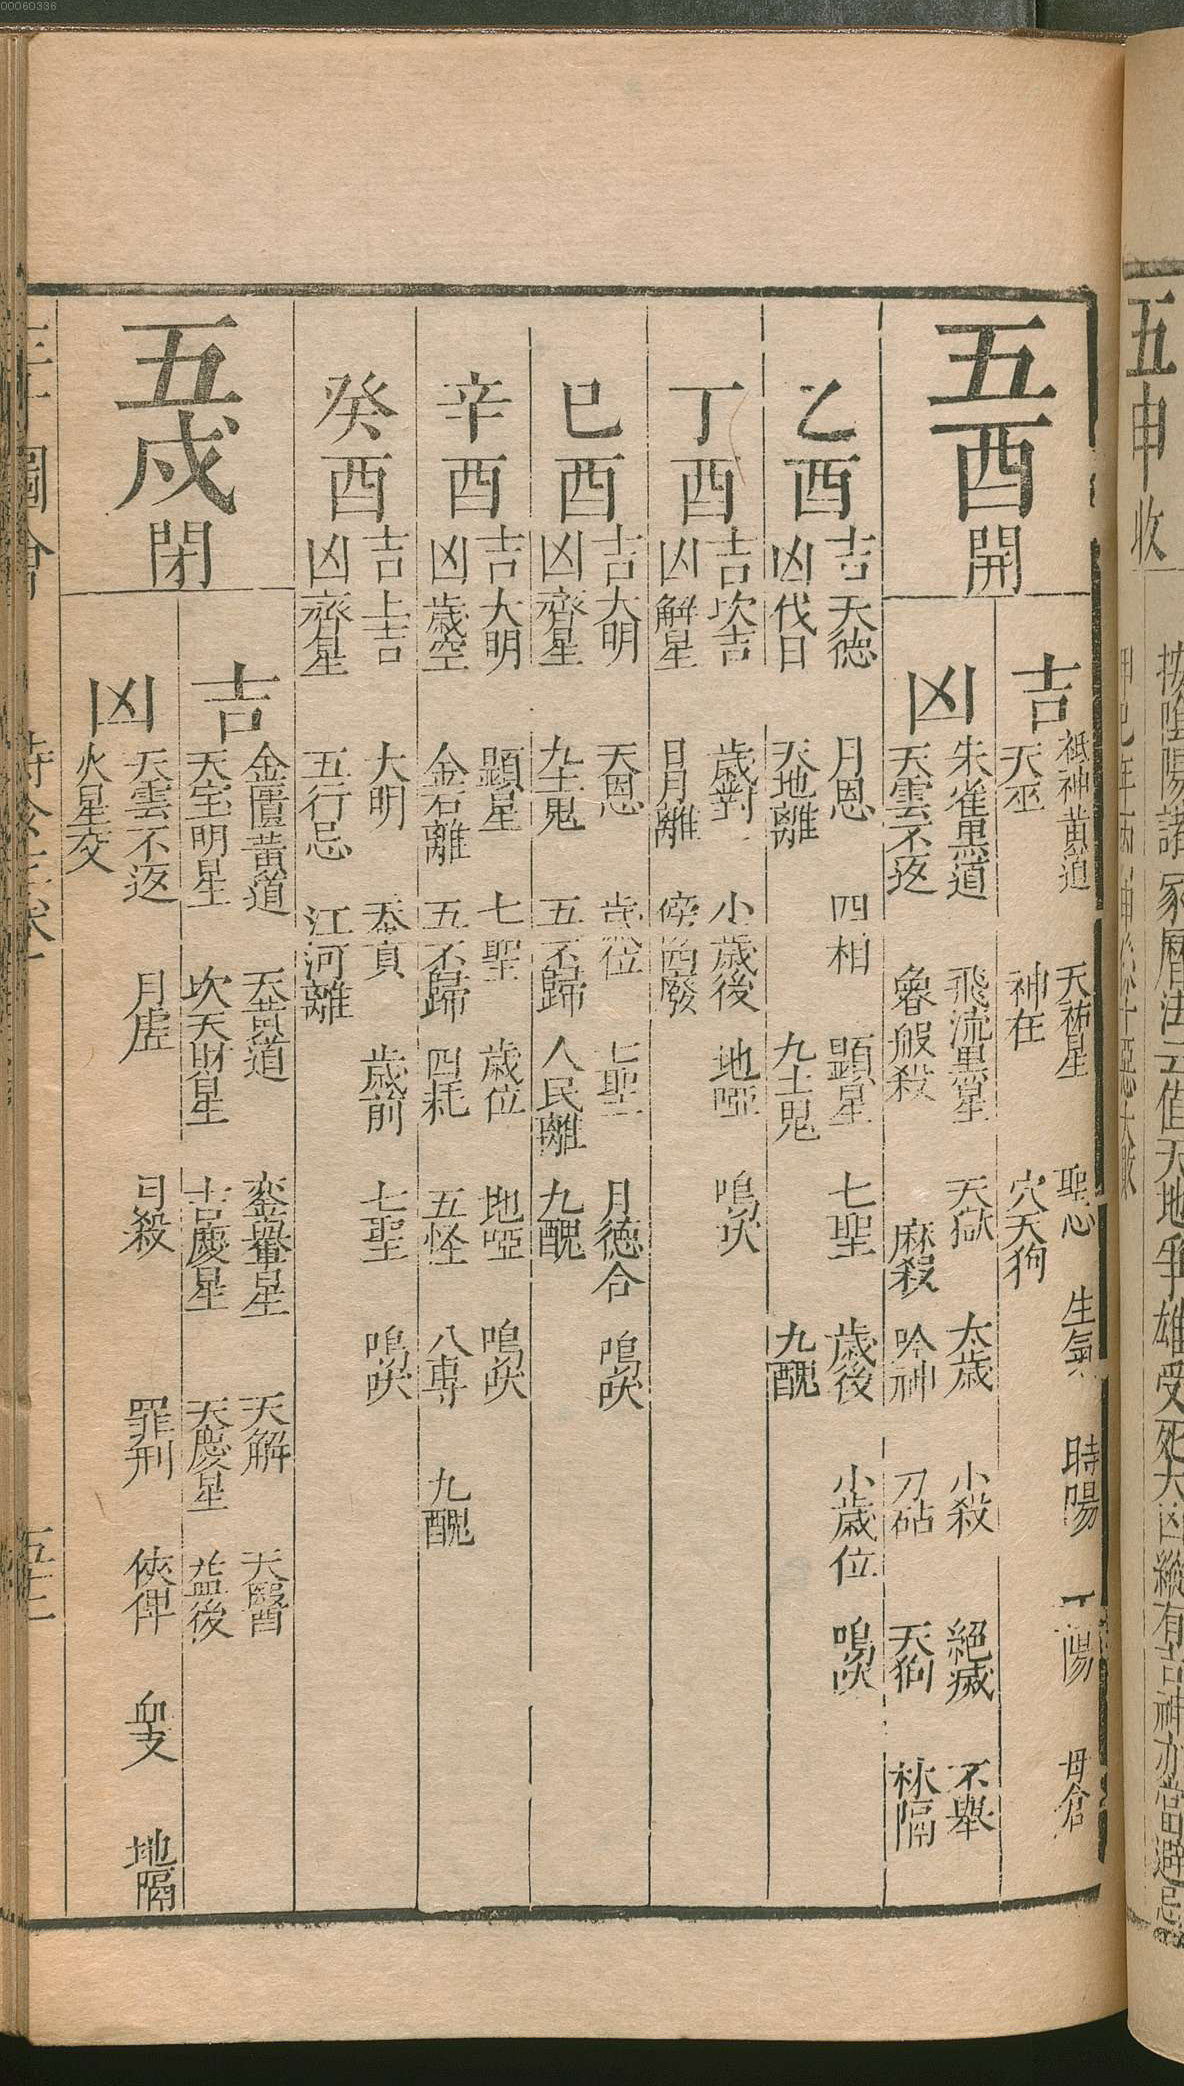 00060336
五申收
按陰陽諸家曆法云值天地爭雄受死大凶縱有吉神亦當避忌
五酉開
吉
祗神黃道 天祐星 聖心 生氣 時陽 陽 母倉
天巫 神在 穴天狗
凶
朱雀黑道 飛流黑星 天獄 太歲 小殺 絕滅 不舉
天雲不返 魯般殺 麻殺 吟神 刀砧 天狗 林隔
乙酉
吉 天德 月恩 四相 顯星 七聖 歲後 小歲位 鳴吠
凶 伐日 天地離 九土鬼 九醜
丁酉
吉 坎吉 歲對 小歲後 地啞 鳴吠
凶 解星 日月離 傍四廢
巳酉
吉 大明 天恩 歲位 七聖 月德合 鳴吠
凶 齊星 九土鬼 五不歸 人民離 九醜
辛酉
吉 大明 顯星 七聖 歲位 地啞 鳴吠
凶 歲空 金石離 五不歸 四耗 五怪 八專 九醜
癸酉
吉 上吉 大明 天貢 歲前 七聖 鳴吠
凶 齊星 五行忌 江河離
五戌閉
吉
金匱黃道 天黃道 鑾輿星 天解 天醫
天宝明星 坎天財星 吉慶星 天慶星 益後
凶
天雲不返 月虛 月殺 罪刑 俠俾 血支 地隔
火星交
三才圖會 時令三卷 五十二